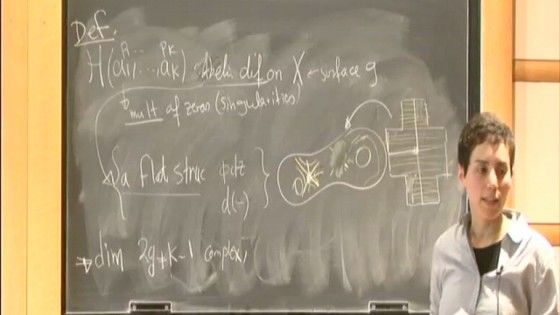 Def.
P1 ... Pk
H(a1, ..., ak) Abela dif on X ← surface g
mult of zeros (singularities)
a flat struc
d(-)
⇒ dim 2g+k-1 complex,